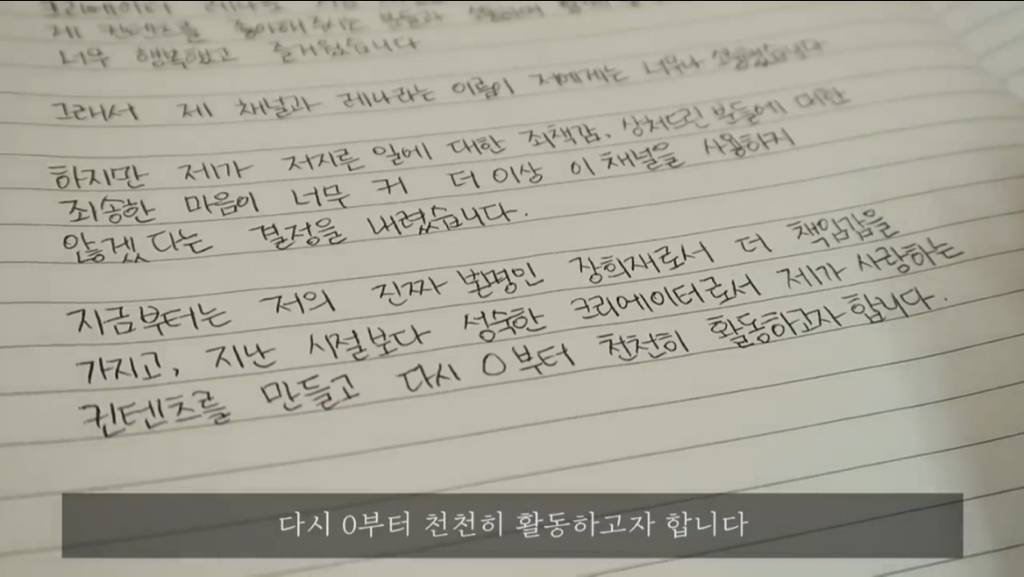 너무 행복했고 즐거웠습니다
그래서 제 채널과 레나라는 이름이 저에게는 너무나 소중했습니다
하지만 제가 저지른 일에 대한 죄책감, 상처드린 분들에 대한
죄송한 마음이 너무 커 더 이상 이 채널을 사용하지
않겠다는 결정을 내렸습니다.
지금부터는 저의 진짜 본명인 장희재로서 더 책임감을
가지고, 지난 시절보다 성숙한 크리에이터로서 제가 사랑하는
컨텐츠를 만들고 다시 0부터 천천히 활동하고자 합니다.
다시 0부터 천천히 활동하고자 합니다